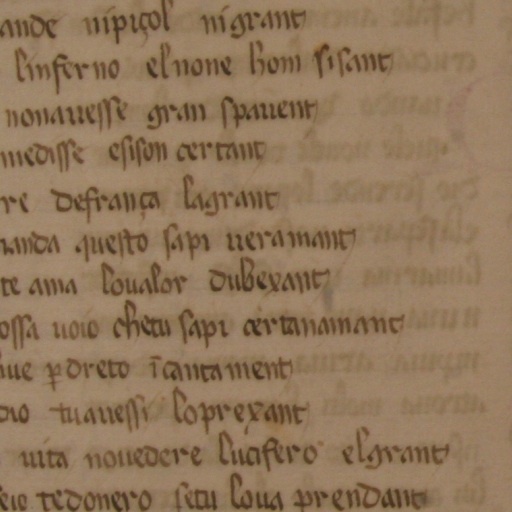 ande nipiçol nigrant
linferno elnone hom sisant
nonauesse gran spauent
medisse esison certant
re defrança lagrant
anda questo sapi ueramant
te ama loualor dubexant
ossa uoio chetu sapi certanamant
ue ꝑdreto īcantament
dio tuauessi loprexant
uita nouedere lucifero elgrant
eio tedonero setu loua prendant